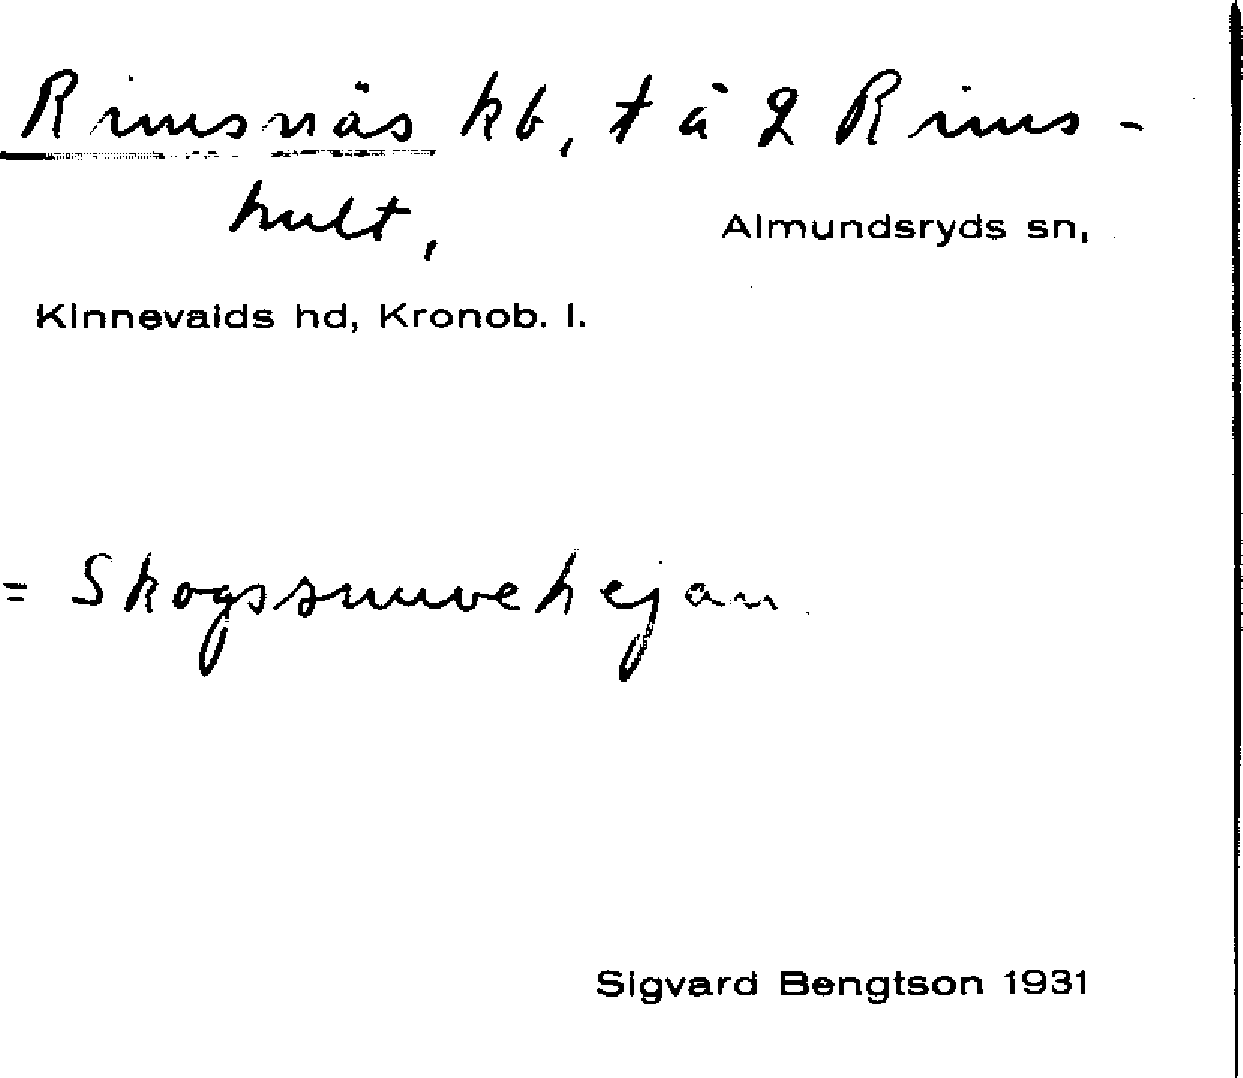 Rimsnäs kb, t å 2 Rims-
hult,
Almundsryds sn,
Kinnevalds hd, Kronob. l.
= Skogssnuvehejan
Sigvard Bengtson 1931